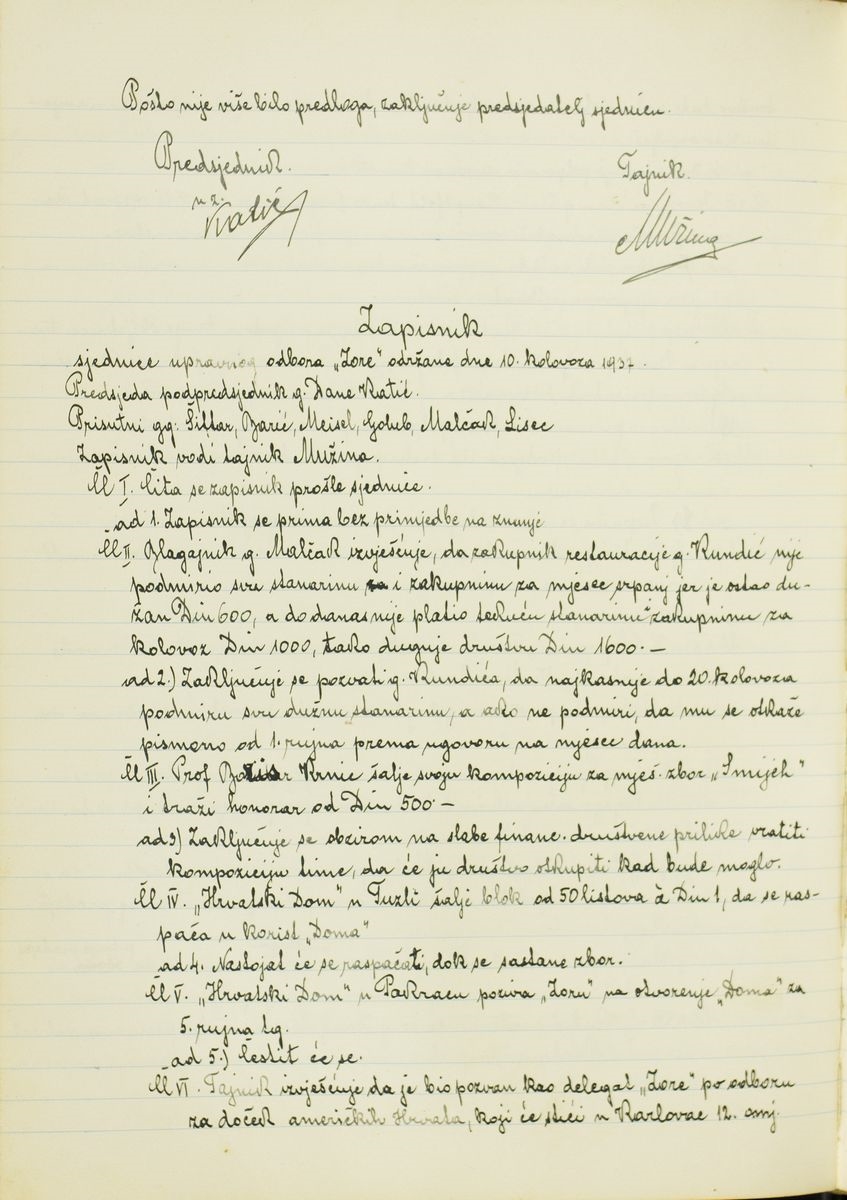 Pošto nije više bilo predloga, zaključuje predsjedatelj sjednicu.
Predsjednik. Tajnik.
u z.
Katić Mužina
Zapisnik
sjednice upravnog odbora „Zore“ održane dne 10. kolovoza 1937.
Predsjeda podpredsjednik g. Dane Katić.
Prisutni gg: Šiftar, Barić, Meisel, Golub, Malčak, Lisec
Zapisnik vodi tajnik Mužina.
Čl I. Čita se zapisnik prošle sjednice.
ad 1. Zapisnik se prima bez primjedbe na znanje
Čl II. Blagajnik g. Malčak izvješćuje, da zakupnik restauracije g. Kundić nije
podmirio svu stanarinu i zakupninu za mjesec srpanj jer je ostao du-
žan Din 600, a do danas nije platio tekuću stanarinu zakupninu za
kolovoz Din 1000, tako duguje društvu Din 1600.—
ad 2.) Zaključuje se pozvati g. Kundića, da najkasnije do 20. kolovoza
podmiru svu dužnu stanarinu, a ako ne podmiri, da mu se otkaže
pismeno od 1. rujna prema ugovoru na mjesec dana.
Čl III. Prof Krnic šalje svoju kompoziciju za mješ. zbor „Smijeh“
i traži honorar od Din 500.—
ad 3) Zaključuje se obzirom na slabe financ. društvene prilike vratiti
kompoziciju time, da će ju društvo otkupiti kad bude moglo.
Čl IV. „Hrvatski Dom“ u Tuzli šalje blok od 50 listova à Din 1, da se ras-
pača u korist „Doma“
ad 4. Nastojat će se raspačati, dok se sastane zbor.
Čl V. „Hrvatski Dom“ u Pakracu poziva „Zoru“ na otvorenje „Doma“ za
5. rujna tg.
ad 5.) Čestit će se.
Čl VI. Tajnik izvješćuje da je bio pozvan kao delegat „Zore“ po odboru
za doček američkih Hrvata, koji će stići u Karlovac 12. omj.